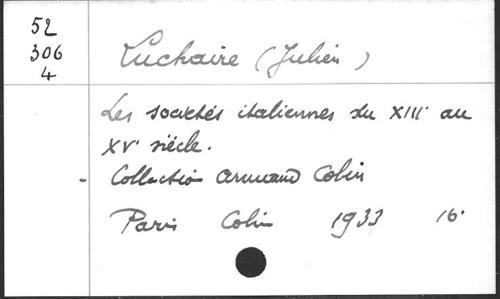 52
306
4
Luchaire (Julien)
Les sociétés italiennes du XIIIe au
XVe siècle.
- Collection Armand Colin
Paris Colin 1933 16°